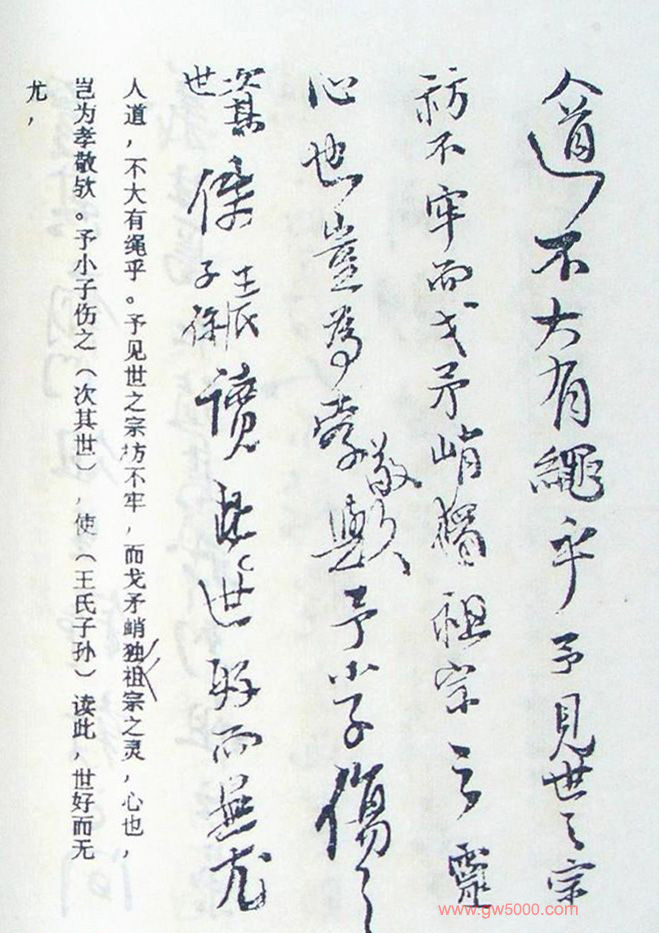 人道不大有繩乎予見世之宗
祊不牢而戈矛峭獨祖宗之靈
心也豈為孝敬歟予小子傷之
次其世使王氏子孫讀此世好而無尤
人道，不大有绳乎。予见世之宗坊不牢，而戈矛峭独祖宗之灵，心也，
岂为孝敬欤。予小子伤之（次其世），使（王氏子孙）读此，世好而无
尤，
www.gw5000.com